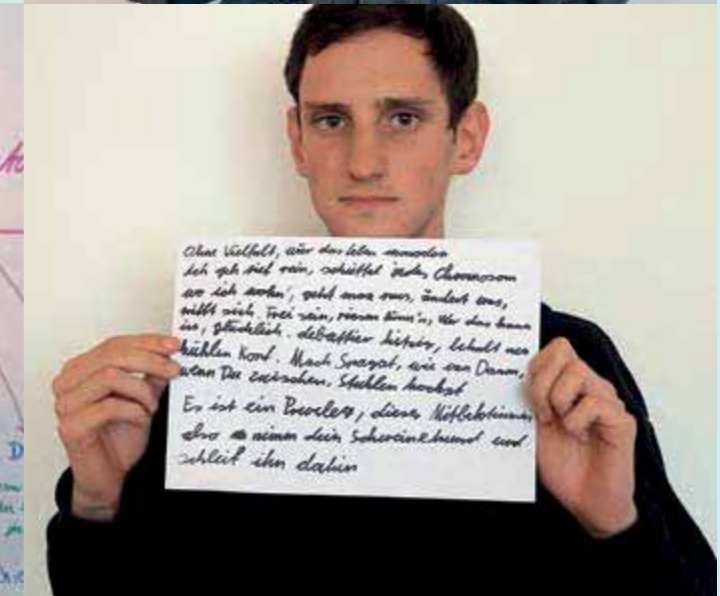 Ohne Vielfalt, wär das leben
ich geh tief rein, schüttel jedes Chromosom
wo ich wohn', geht man raus, ändert was,
trifft sich. Frei sein, wer das kann
ist, glücklich. debattier hitzig, behalt nen
kühlen Kopf. Mach Spagat, wie van Damm,
wenn Du zwischen Stühlen hockst
Es ist ein Privileg, dieses Mitbestimmen
also nimm dein Schweinehund und
schleif ihn dahin